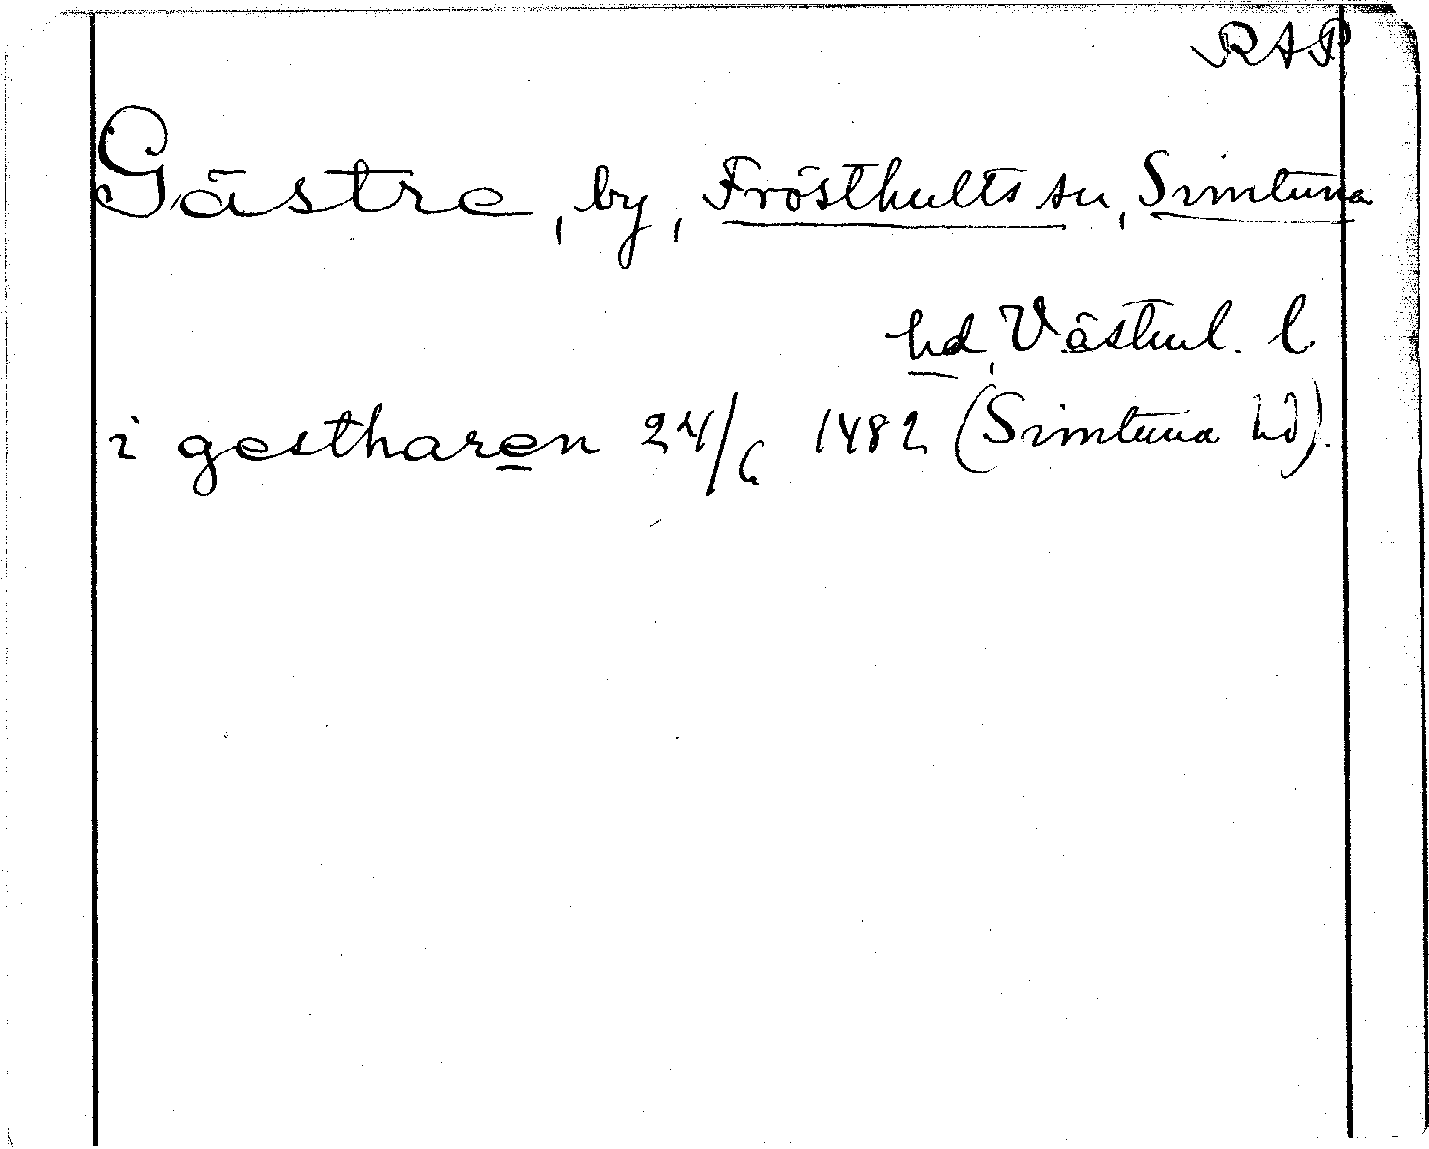 RAP
Gästre, by, Frösthults sn, Simtuna
hd, Västml. l.
i gestharen 24/6 1482 (Simtuna hd).